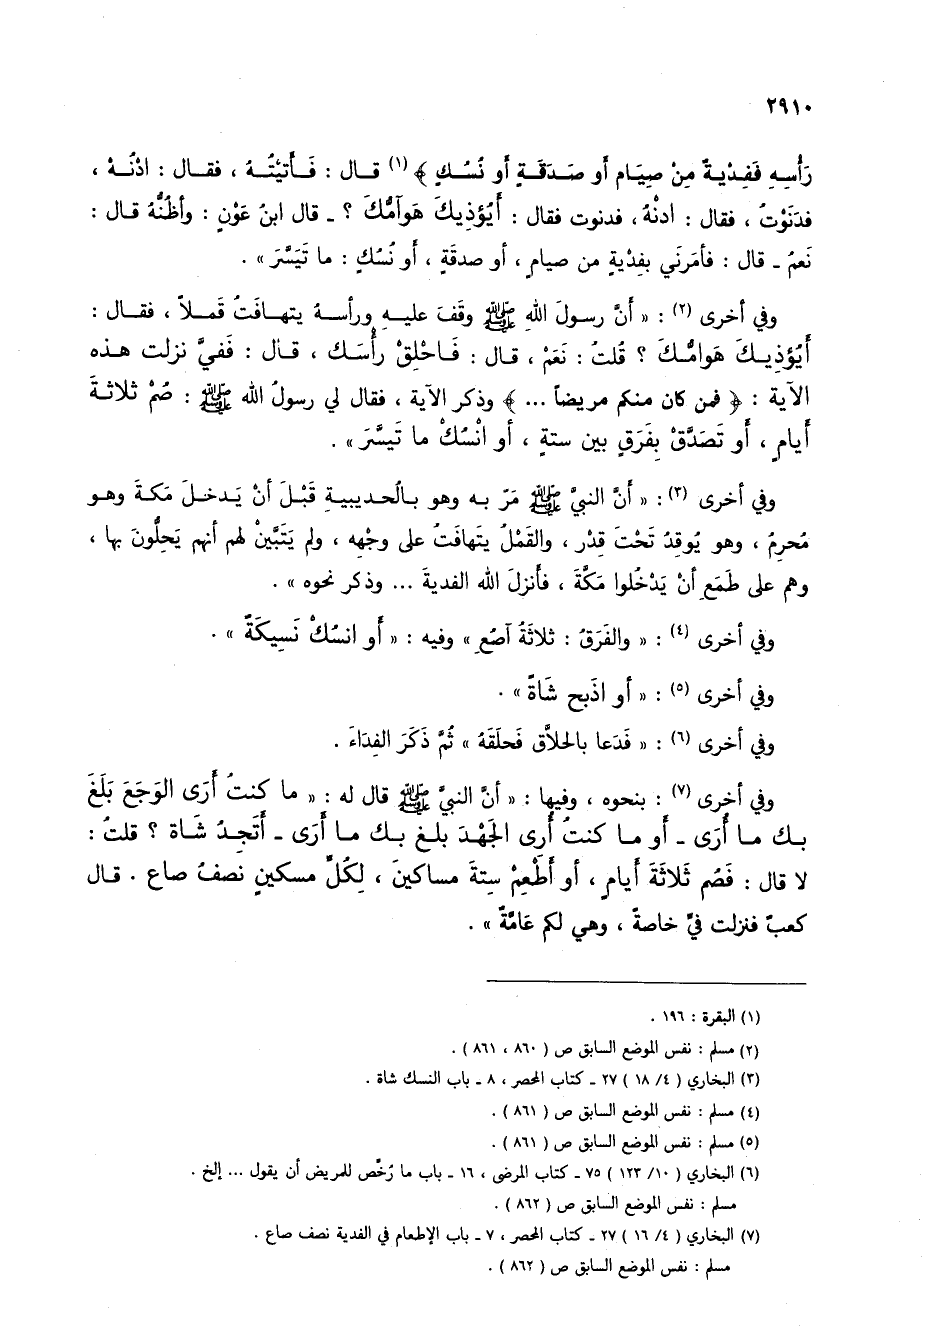 ٢٩١٠
رَأْسِهِ فَفِدْيَةٌ مِنْ صِيَامٍ أو صَدَقَةٍ أو نُسُكٍ ﴾ (١) قال : فَأَتَيْتُهُ ، فقال : ادْنُهْ ،
فدَنَوْتُ ، فقال : ادنُهْ ، فدنوت فقال : أَيُؤْذِيكَ هَوَامُّكَ ؟ ـ قال ابنُ عَوْنٍ : وأظنُّهُ قال :
نَعمْ ـ قال : فأمَرَني بِفِدْيةٍ من صيامٍ ، أو صدقَةٍ ، أو نُسُكٍ : ما تَيَسَّرَ » .
وفي أخرى (٢) : « أَنَّ رسولَ الله ﷺ وقَفَ عليهِ ورأسهُ يتهافَتُ قَملاً ، فقال :
أَيُؤْذِيكَ هَوامُّكَ ؟ قُلتُ : نَعَمْ ، قال : فَاحْلِقْ رأْسَكَ ، قال : فَفيَّ نزلت هذه
الآية : ﴿ فمن كان منكم مريضاً ... ﴾ وذكر الآية ، فقال لي رسولُ الله ﷺ : صُمْ ثلاثةَ
أيامٍ ، أو تَصَدَّقْ بِفَرَقٍ بين ستةٍ ، أو انْسُكْ ما تَيسَّرَ » .
وفي أخرى (٣) : « أنَّ النبيَّ ﷺ مَرّ به وهو بالحديبيةِ قَبْلَ أنْ يَدخلَ مَكةَ وهو
مُحرِمٌ ، وهو يُوقِدُ تَحْتَ قِدْرٍ ، والقَمْلُ يتَهافَتُ على وجْهِه ، ولم يَتَبَيَّنْ لهم أنهم يَحِلُّونَ بها ،
وهم على طَمَعٍ أنْ يَدْخُلوا مَكَّةَ ، فأنزلَ الله الفديةَ ... وذكر نحوه » .
وفي أخرى (٤) : « والفَرَقُ : ثلاثَةُ آصُعٍ » وفيه : « أَو انسُكْ نَسِيكَةً » .
وفي أخرى (٥) : « أو اذَبح شَاةً » .
وفي أخرى (٦) : « فَدَعا بالحلاَّقِ فَحلَقَهُ » ثُمَّ ذَكَرَ الفِدَاءَ .
وفي أخرى (٧) : بنحوه ، وفيها : « أنَّ النبيَّ ﷺ قال له : « ما كنتُ أَرَى الوَجَعَ بَلَغَ
بِك ما أَرَى ـ أو ما كنتُ أُرى الجَهْدَ بلغ بك ما أَرَى ـ أَتَجدُ شَاة ؟ قلتُ :
لا قال : فَصُم ثَلاثَةَ أيامٍ ، أو أطْعِمْ ستةَ مساكينَ ، لِكُلِّ مسكينٍ نَصفُ صاعٍ . قال
كعبٌ فنزلت فيَّ خاصةً ، وهي لكم عَامَّةً » .
(١) البقرة : ١٩٦ .
(٢) مسلم : نفس الموضع السابق ص ( ٨٦٠ ، ٨٦١ ) .
(٣) البخاري ( ٤/ ١٨ ) ٢٧ ـ كتاب المحصر ، ٨ ـ باب النسك شاة .
(٤) مسلم : نفس الموضع السابق ص ( ٨٦١ ) .
(٥) مسلم : نفس الموضع السابق ص ( ٨٦١ ) .
(٦) البخاري ( ١٠/ ١٢٣ ) ٧٥ ـ كتاب المرضى ، ١٦ ـ باب ما رُخّص للمريض أن يقول ... إلخ .
مسلم : نفس الموضع السابق ص ( ٨٦٢ ) .
(٧) البخاري ( ٤/ ١٦ ) ٢٧ ـ كتاب المحصر ، ٧ ـ باب الإطعام في الفدية نصف صاع .
مسلم : نفس الموضع السابق ص ( ٨٦٢ ) .